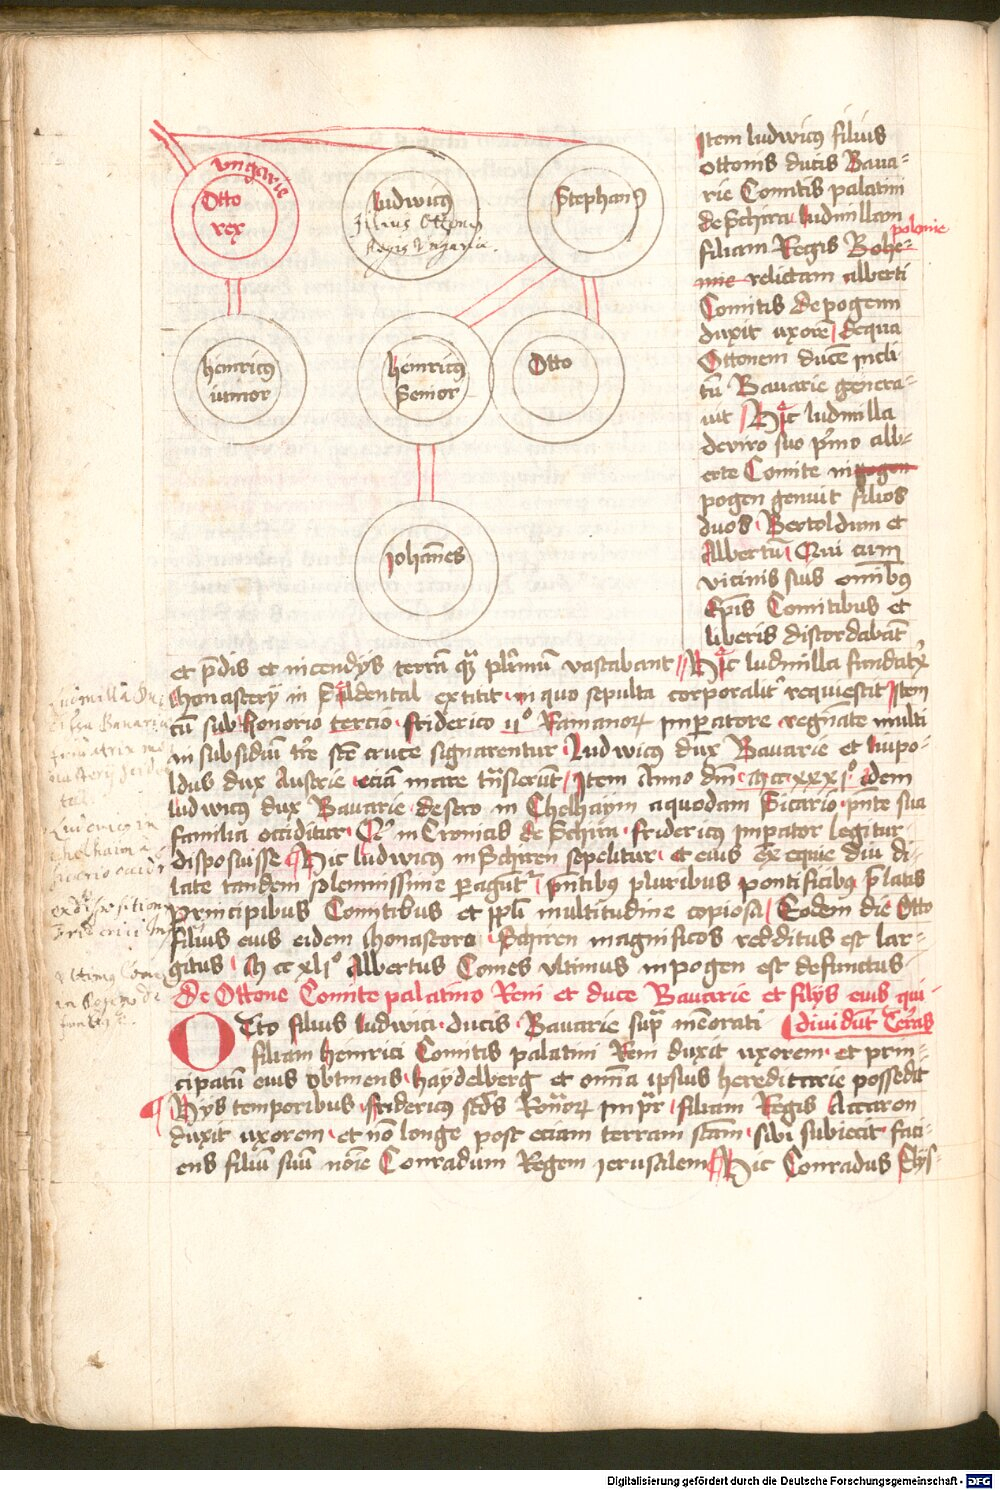 vngarie
Otto
rex
ludwicus
filius Ottonis
Regis Vngarie.
Stephanus
heinricus
iunior
heinricus
Senior
Otto
Johannes
Item ludwicus filius
ottonis ducis Baua-
rie Comitis palatini
de Schira ludmillam
filiam Regis Bohe- polonie
mie relictam alberti
Comitis de pogenn
duxit uxorem de qua
Ottonem ducem incli
tum Bauarie genera-
uit Hic ludmilla
de viro suo primo alb-
erte Comite in pogen
pogen genuit filios
duos Bertoldum et
Albertum Qui cum
vicinis suis omnibus
Episcopis Comitibus et
liberis discordabant
et predis et incendys terram quam plurimum vastabant Hic ludmilla fundatrix
Monastery in Seldental extitit in quo sepulta corporaliter requiescit Item
cum sub honorio tercio friderico ii° Ramanorum Imperatore regnante multi
in subsidium terre sancte cruce signarentur ludwicus dux Bauarie et liupo-
ldus dux Austrie eciam mare transierunt Item Anno domini M cc xxxi° idem
ludwicus dux Bauarie de sero in Chelhaym a quodam Sicario presente sua
familia occiditur Quod in Cronicis de Schira fridericus Imperator legitur
disposuisse Hic ludwicus in Schiren sepelitur et eius exequie diu di-
late tandem solennissime peraguntur presentibus pluribus pontificibus prelatis
principibus Comitibus et populi multitudine copiosa Eodem die Otto
filius eius eidem Monasterio Schiren magnificos redditus est lar-
gitus M cc xli° Albertus Comes vltimus in pogen est defunctus
De Ottone Comite palatino Reni et duce Bauarie et filys eius qui
diuidunt Terras
Otto filius ludwici ducis Bauarie supra memorati
filiam heinrici Comitis palatini Reni duxit uxorem et prin-
cipatum eius obtinens haydelberg et omnia ipsius hereditarie possedit
Hys temporibus fridericus secundus Romanorum Imperator filiam Regis Accaron
duxit uxorem et non longe post eciam terram sanctam sibi subiecit faci-
ens filium suum nomine Conradum Regem Jerusalem Hic Conradus Elys-
Ludmilla Du
Bauariae
fundatrix mo
nastery selden
tal
Ludouicus in
chelhaim a
sicario occidi
ex dispositione
friderici Imp
Vltimus Comes
in Bogen de
functus.
Digitalisierung gefördert durch die Deutsche Forschungsgemeinschaft - DFG